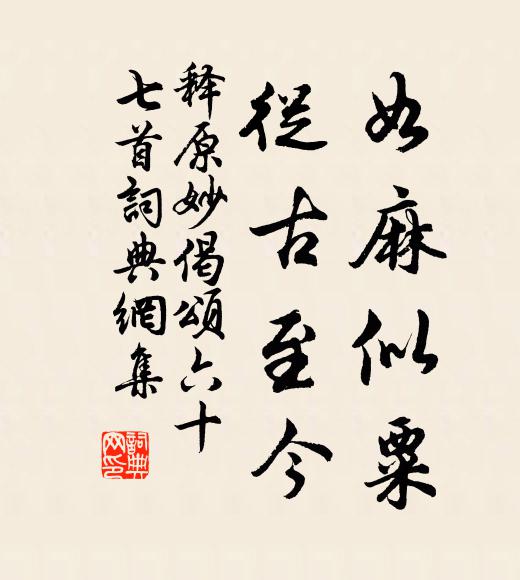 如麻似粟
從古至今
释原妙偈頌六十
七首詞典網集
詞典
网印